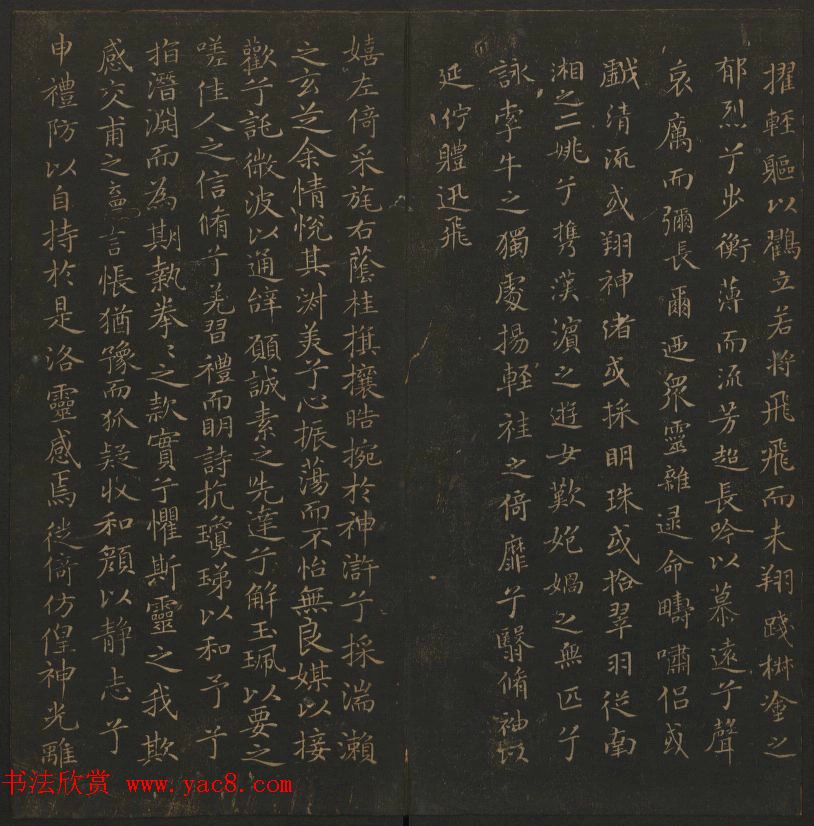 擢輕軀以鸖立若將飛飛而未翔踐椒塗之
郁烈兮步衡薄而流芳超長吟以慕遠兮聲
哀厲而彌長爾迺衆靈雜遝命疇嘯侶或
戲清流或翔神渚或採明珠或拾翠羽從南
湘之二姚兮攜漢濱之遊女歎媧之無匹兮
詠牽牛之獨處揚輕袿之倚靡兮翳脩袖以
延佇體迅飛
嬉左倚采旄右蔭桂旗攘皓捥於神滸兮採湍瀨
之玄芝余情悅其淑美兮心振蕩而不怡無良媒以接
歡兮託微波以通辭願誠素之先達兮解玉珮以要之
嗟佳人之信脩兮羌習禮而明詩抗瓊珶以和予兮
指潛淵而為期執拳〻之款實兮懼斯靈之我欺
感交甫之棄言悵猶豫而狐疑收和顏以靜志兮
申禮防以自持於是洛靈感焉徙倚仿偟神光離
书法欣赏 www.yac8.com